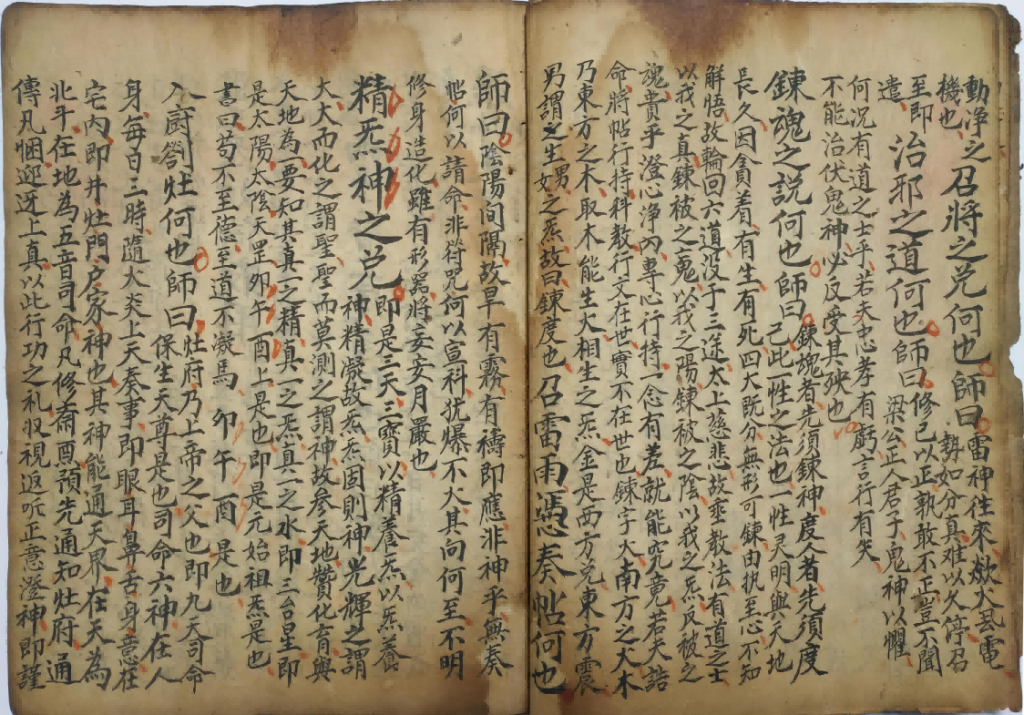 動浄之召將之兑何也師曰雷神往來欻火㷍電
機也勢如分真难以久停召
至即治邪之道何也師曰修己以正孰敢不正豈不聞
遣梁公正人君子鬼神以懼
何況有道之士乎若夫忠孝有虧言行有失
不能治伏鬼神必反受其殃也
鍊魂之説何也師曰鍊魂者先須鍊神度人者先須度
己此性之法也一性灵明與天地
長久因貪着有生有死四大既分無形可鍊由执至心不知
解悟故輪回六道没于三途太上慈悲故垂教法有道之士
以我之真鍊被之䰟以我之陽鍊被之陰以我之炁反被之
魂貴乎澄心净内專心行持一念有差就能究竟若夫誥
命將帖行持科教行文在世實不在世也鍊字大南方之大木
乃東方之木取木能生大相生之炁金是西方兑東方震
男謂之生女男之炁故曰鍊度也召雷雨憑奏帖何也
師曰陰陽间隔故旱有霧有禱即應非神乎無奏
帖何以請命非符咒何以宣科犹爆不大其向何至不明
修身造化雖有形器將妄妄月嚴也
精炁神之兑即是三天三寶以精養炁以炁養
神精凝故炁炁固則神光輝之謂
大大而化之謂聖聖而莫測之謂神故參天地贊化育與
天地為一要知其真一之精真一之炁真一之水即三台星即
是太陽太陰天罡夘午酉上是也即是元始祖炁是也
書曰苟不至德至道不凝焉夘午酉是也
入厨劄灶何也師曰灶府乃上帝之父也即九天司命
保生天尊是也司命六神在人
身每日三時隨火炎上天奏事即眼耳鼻舌身意在
宅内即井灶門户家神也其神能通天界在天為
北斗在地為五音司命凡修齋醮預先通知灶府通
傳凡悃迎迓上真以此行功之礼收視返听正意澄神即謹